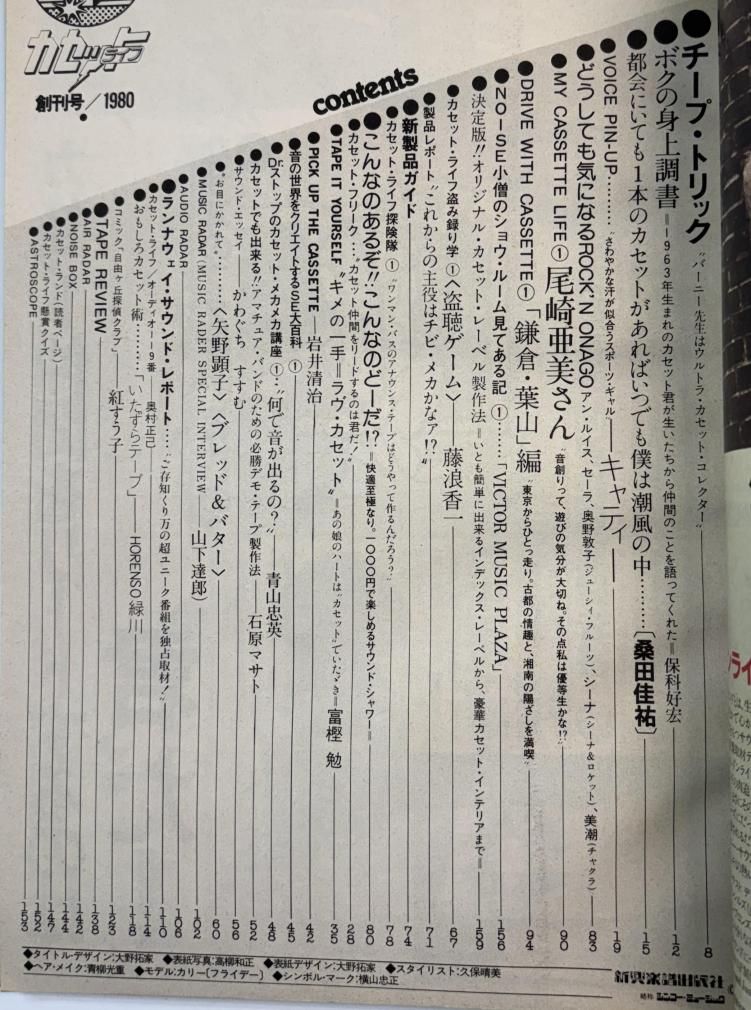 カセットライフ
創刊号/1980
contents
●チープ・トリック "バーニー先生はウルトラ・カセット・コレクター" 8
●ボクの身上調書 =1963年生まれのカセット君が生いたちから仲間のことを語ってくれた= 保科好宏 12
●都会にいても1本のカセットがあればいつでも僕は潮風の中………〔桑田佳祐〕 15
●VOICE PIN-UP………"さわやかな汗が似合うスポーツ・ギャル" キャティ 19
●どうしても気になるROCK'N ONAGO アン・ルイス、セーラ、奥野敦子(ジューシィ・フルーツ)、シーナ(シーナ&ロケット)、美潮(チャクラ) 83
●MY CASSETTE LIFE① 尾崎亜美さん "音創りって、遊びの気分が大切ね。その点私は優等生かな!?" 90
●DRIVE WITH CASSETTE①「鎌倉・葉山」編 "東京からひとっ走り。古都の情趣と、湘南の陽ざしを満喫" 94
●NOISE小僧のショウ・ルーム見てある記 ①………「VICTOR MUSIC PLAZA」 156
●決定版!!オリジナル・カセット・レーベル製作法 =いとも簡単に出来るインデックス・レーベルから、豪華カセット・インテリアまで= 159
●カセット・ライフ盗み録り学 ①〈盗聴ゲーム〉 藤浪香一 67
●製品レポート "これからの主役はチビ・メカかなァ!?" 71
●新製品ガイド 74
●カセット・ライフ探険隊 ① "ワンマン・バスのアナウンス・テープはどうやって作るんだろう?" 78
●こんなのあるぞ!!こんなのどーだ!? =快適至極なり。1000円で楽しめるサウンド・シャワー= 80
●カセット・フリーク…"カセット仲間をリードするのは君だ!" 28
●TAPE IT YOURSELF "キメの一手=ラヴ・カセット" =あの娘のハートは"カセット"でいたゞき= 富樫 勉 35
●PICK UP THE CASSETTE 岩井清治 42
●音の世界をクリエイトするの大百科 ① 45
●Dr.ストップのカセット・メカメカ講座 ①…"何で音が出るの?" 青山忠英 48
●カセットでも出来る!!アマチュア・バンドのための必勝デモ・テープ製作法 石原マサト 52
●サウンド・エッセイ かわぐち すすむ 56
●"お目にかかれて"………〈矢野顕子〉〈ブレッド&バター〉 60
●MUSIC RADAR(MUSIC RADER SPECIAL INTERVIEW 山下達郎) 102
●AUDIO RADAR 106
●ランナウェイ・サウンド・レポート……"ご存知くり万の超ユニーク番組を独占取材!" 110
●カセット・ライフ/オーディオ119番 奥村正己 114
●おもしろカセット術………「いたずらテープ」 HORENSO緑川 118
●コミック「自由ヶ丘探偵クラブ」 紅すう子 123
●TAPE REVIEW 138
●AIR RADAR 142
●NOISE BOX 144
●カセット・ランド(読者ページ) 147
●カセット・ライフ懸賞クイズ 152
●ASTROSCOPE 153
◆タイトル・デザイン:大野拓家 ◆表紙写真:高柳和正 ◆表紙デザイン:大野拓家 ◆スタイリスト:久保晴美
◆ヘア・メイク:青柳光重 ◆モデル:カリー〔フライデー〕 ◆シンボル・マーク:横山忠正
新興楽譜出版社
略称 シンコー・ミュージック